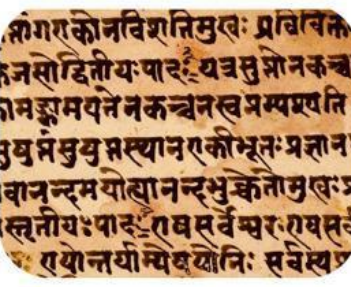 नागएकोनविंशतिमुखः प्रविविक्त
कजसोद्वितीयःपादः यत्रसुप्तोनकच्च
कामङ्कामयतेनकच्चनस्वप्नम्पश्यति
सुषुप्तंसुषुप्तस्थानएकीभूतःप्रज्ञान
वानन्दमयोह्यानन्दभुक्चेतोमुखःप्र
स्तृतीयःपादः एषसर्वेश्वरःएषसर्व
एषोन्तर्याम्येषयोनिः सर्वस्यप्र